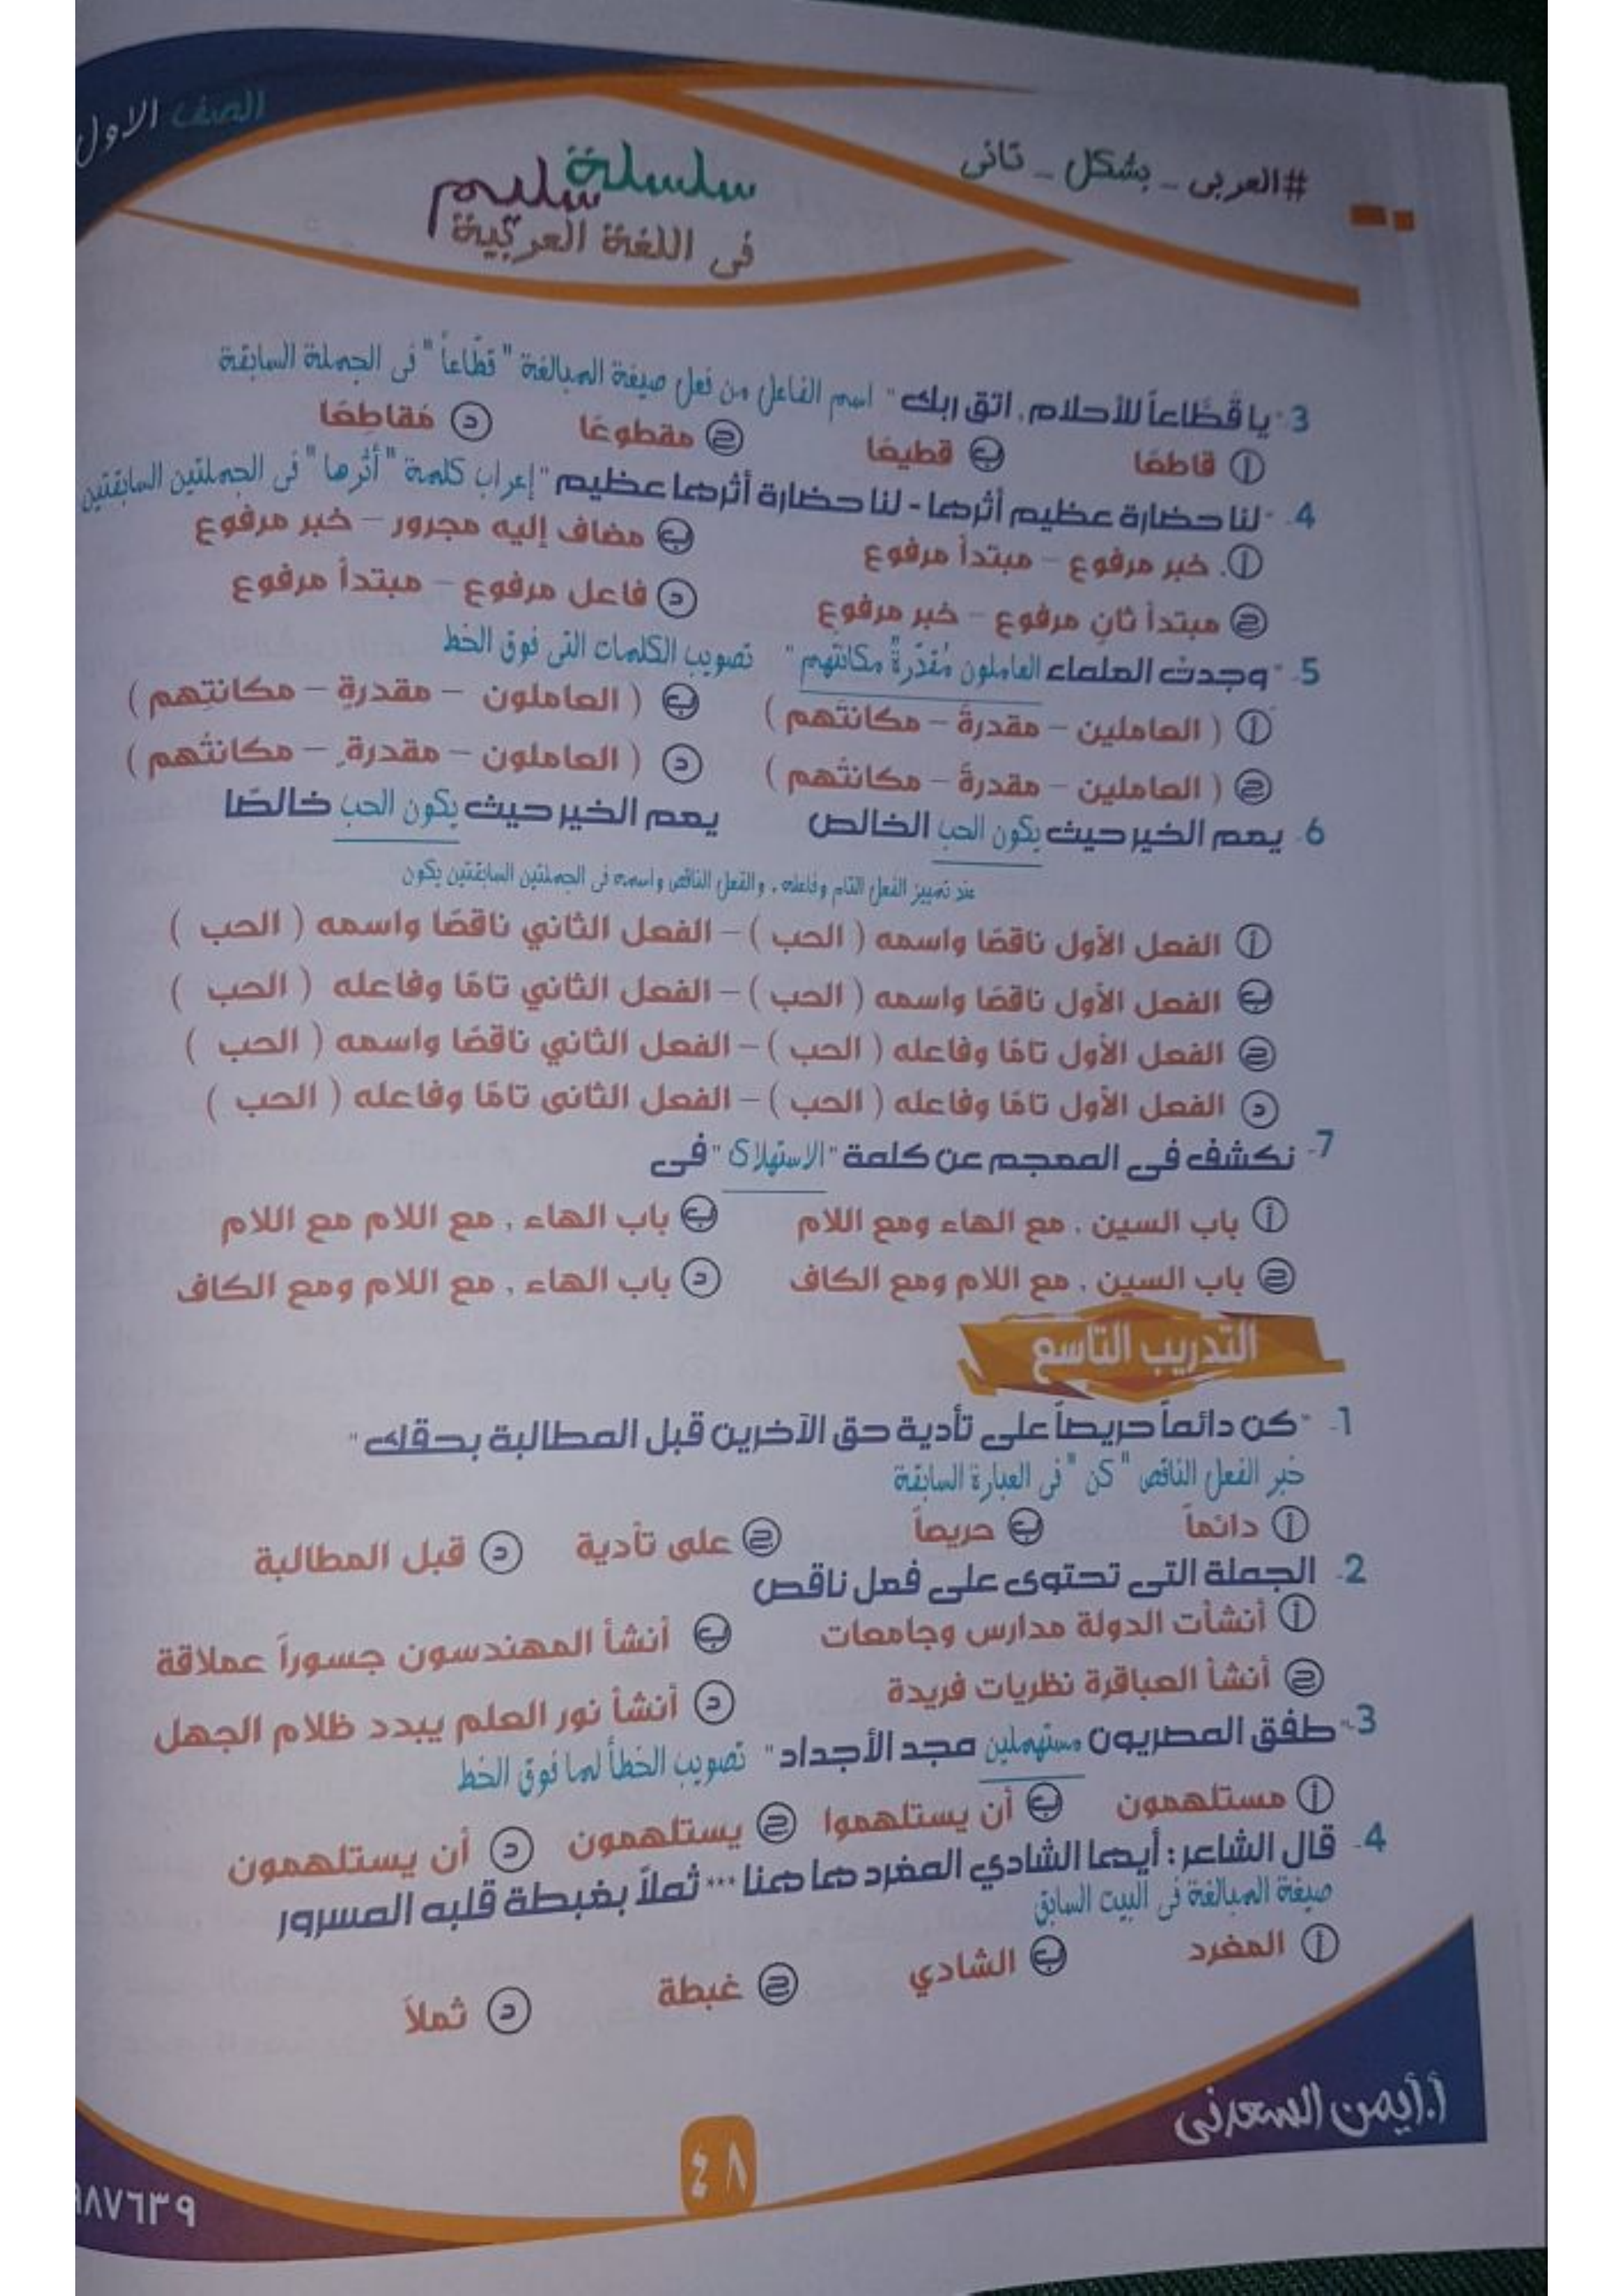 الصف الاول
#العربى _ بشكل _ تانى
سلسلة سليم
فى اللغة العربية
3- "يا قَطَّاعاً للأحلام، اتق ربك" اسم الفاعل من فعل صيغة المبالغة "قطَّاعاً" فى الجملة السابقة
أ قاطعًا ب قطيعًا ج مقطوعًا د مُقاطِعًا
4- "لنا حضارة عظيم أثرها - لنا حضارة أثرها عظيم" إعراب كلمة "أثرها" فى الجملتين السابقتين
أ. خبر مرفوع – مبتدأ مرفوع ب مضاف إليه مجرور – خبر مرفوع
ج مبتدأ ثانٍ مرفوع – خبر مرفوع د فاعل مرفوع – مبتدأ مرفوع
5- "وجدت العلماء العاملون مُقدّرةٌ مكانتَهم" تصويب الكلمات التى فوق الخط
أ ( العاملين – مقدرةً – مكانتَهم ) ب ( العاملون – مقدرةٍ – مكانتِهم )
ج ( العاملين – مقدرةً – مكانتُهم ) د ( العاملون – مقدرةٍ – مكانتُهم )
6- يعم الخير حيث يكون الحب الخالص يعم الخير حيث يكون الحب خالصًا
عند تمييز الفعل التام وفاعله، والفعل الناقص واسمه فى الجملتين السابقتين يكون
أ الفعل الأول ناقصًا واسمه ( الحب ) – الفعل الثاني ناقصًا واسمه ( الحب )
ب الفعل الأول ناقصًا واسمه ( الحب ) – الفعل الثاني تامًا وفاعله ( الحب )
ج الفعل الأول تامًا وفاعله ( الحب ) – الفعل الثاني ناقصًا واسمه ( الحب )
د الفعل الأول تامًا وفاعله ( الحب ) – الفعل الثانى تامًا وفاعله ( الحب )
7- نكشف فى المعجم عن كلمة "الاستهلاك" فى
أ باب السين , مع الهاء ومع اللام ب باب الهاء , مع اللام مع اللام
ج باب السين , مع اللام ومع الكاف د باب الهاء , مع اللام ومع الكاف
التدريب التاسع
1- "كن دائماً حريصاً على تأدية حق الآخرين قبل المطالبة بحقك"
خبر الفعل الناقص "كن" فى العبارة السابقة
أ دائماً ب حريصاً ج على تأدية د قبل المطالبة
2- الجملة التى تحتوى على فعل ناقص
أ أنشأت الدولة مدارس وجامعات ب أنشأ المهندسون جسوراً عملاقة
ج أنشأ العباقرة نظريات فريدة د أنشأ نور العلم يبدد ظلام الجهل
3- "طفق المصريون مستهملين مجد الأجداد" تصويب الخطأ لما فوق الخط
أ مستلهمون ب أن يستلهموا ج يستلهمون د أن يستلهمون
4- قال الشاعر : أيها الشادي المغرد ها هنا *** ثملاً بغبطة قلبه المسرور
صيغة المبالغة فى البيت السابق
أ المغرد ب الشادي ج غبطة د ثملاً
أ.أيمن السعدنى
٤٨
٩٨٧٦٣٩